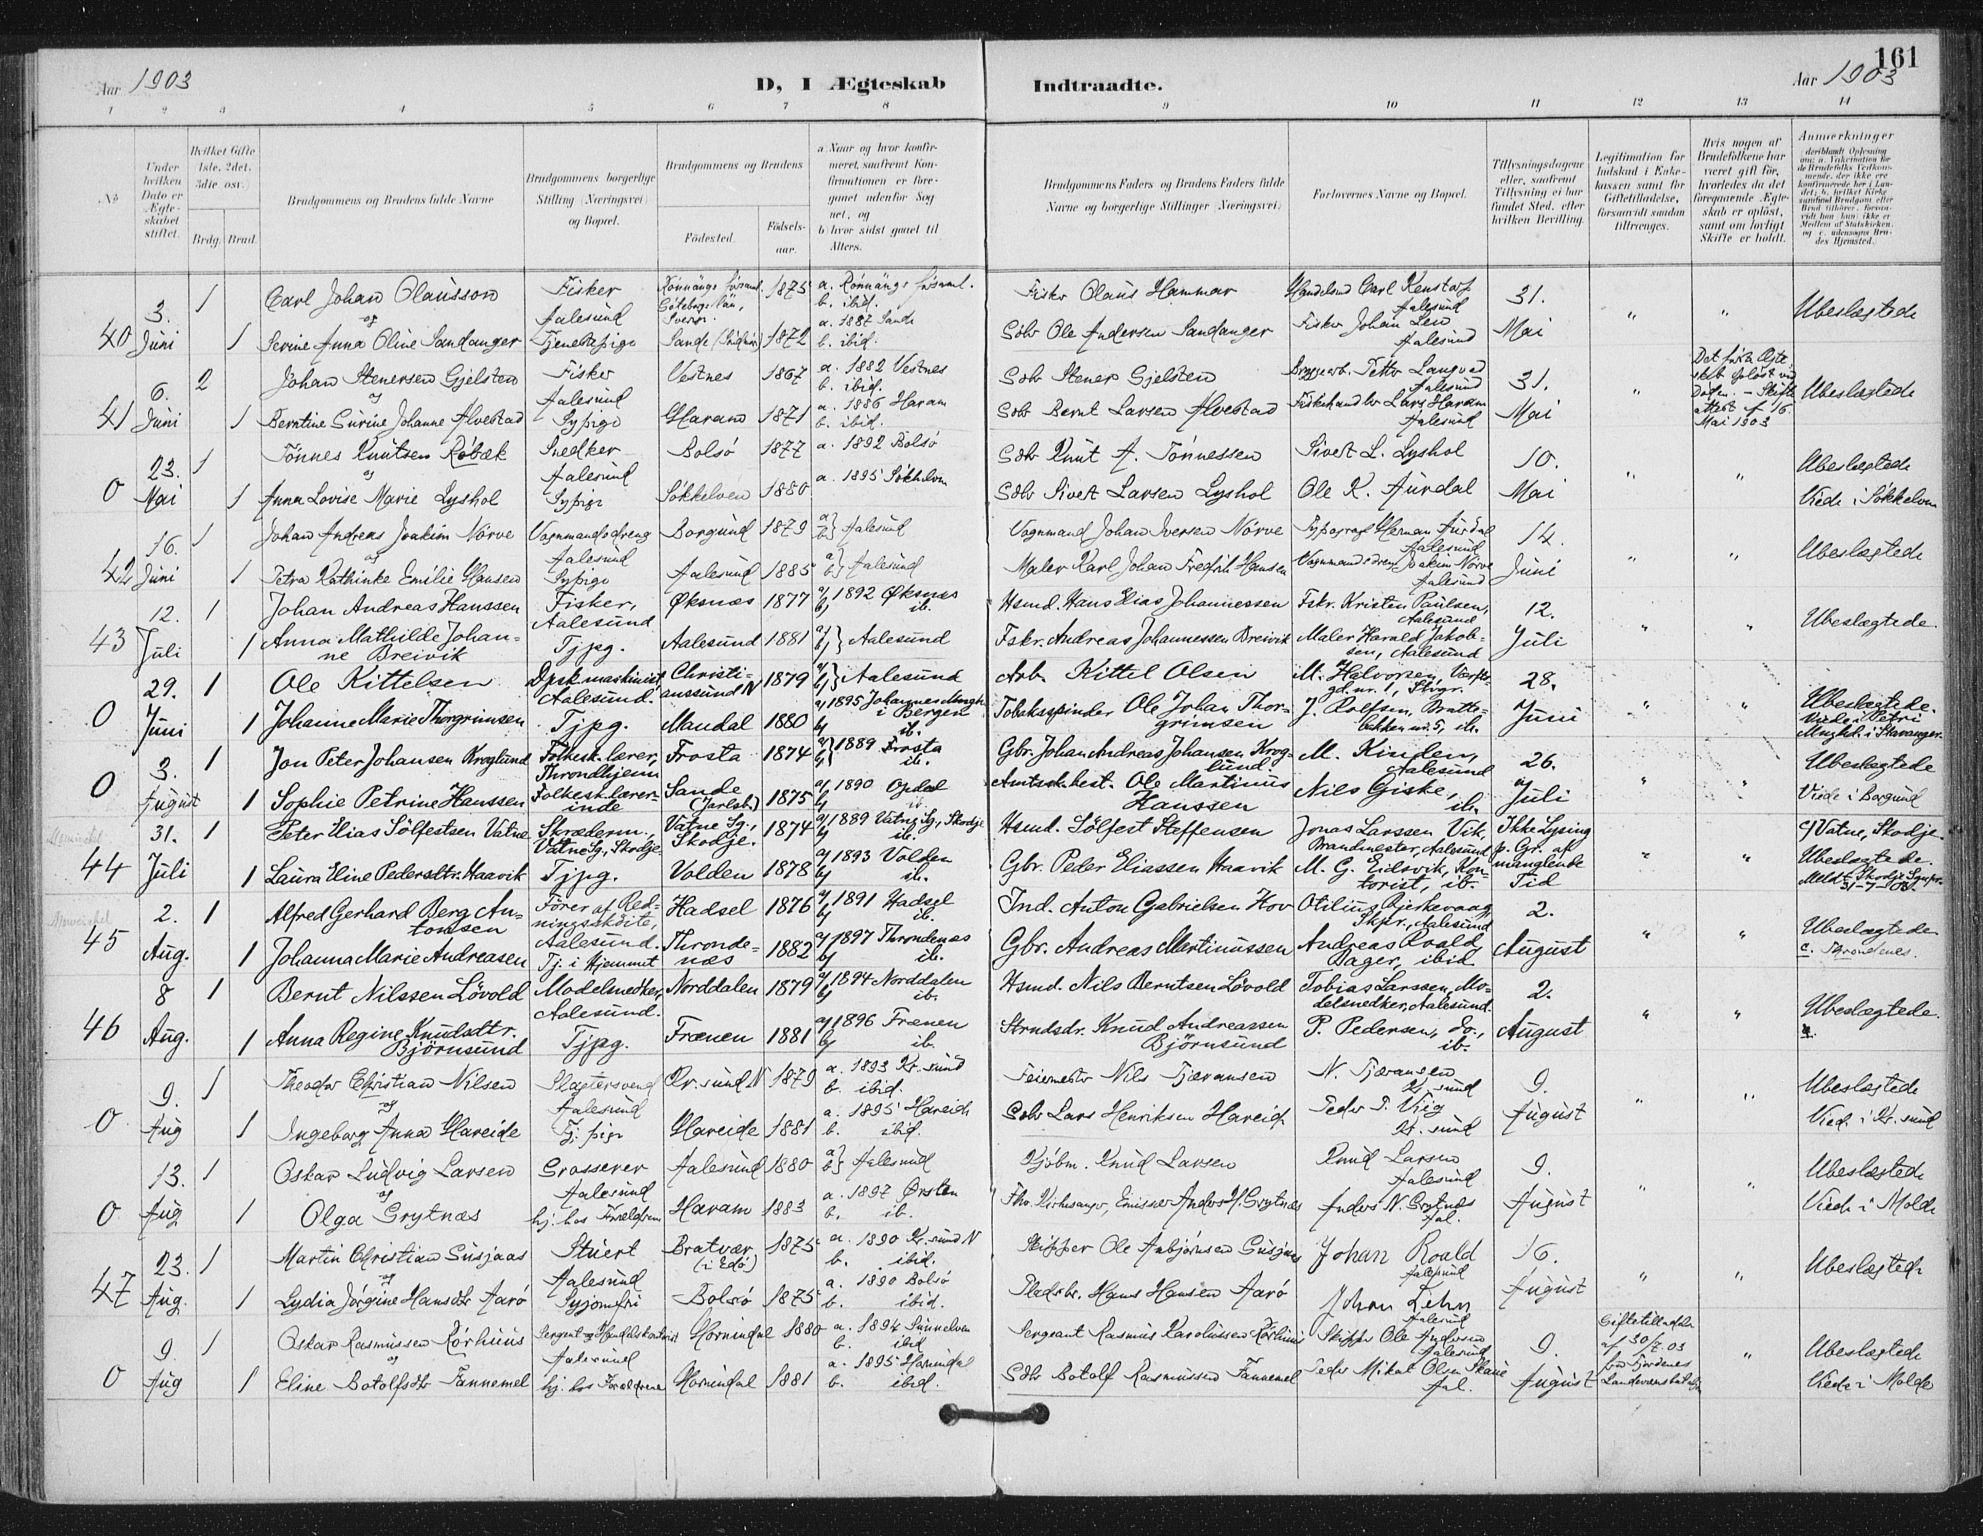 161
Aar 1903
D, I Ægteskab Indtraadte.
Aar 1903
1 2 3 4 5 6 7 8 9 10 11 12 13 14
No
Under hvilken Dato er Ægteskabet stiftet.
Hvilket Gifte 1ste, 2det, 3die osv.
Brdg. Brud.
Brudgommens og Brudens fulde Navne
Brudgommens borgerlige Stilling (Næringsvei) og Bopæl.
Brudgommens og Brudens
Fødested.
Fødselsaar.
a Naar og hvor konfirmeret, saafremt Konfirmationen er foregaaet udenfor Sognet, og
b hvor sidst gaaet til Alters.
Brudgommens Faders og Brudens Faders fulde Navne og borgerlige Stillinger (Næringsvei)
Forlovernes Navne og Bopæl.
Tillysningsdagene eller, saafremt Tillysning ei har fundet Sted, efter hvilken Bevilling.
Legitimation for Indskud i Enkekassen samt for Giftetilladelse, forsaavidt saadan tiltrænges.
Hvis nogen af Brudefolkene har været gift før, hvorledes da det foregaaende Ægteskab er opløst, samt om lovligt Skifte er holdt.
Anmærkninger
40 3. Juni 1 Carl Johan Olausson Fisker Aalesund Rönnängs församl. Göteborgs län, Sverge. 1875 a. Rönnängs församl. b. ibid. Fisker Olaus Hammar Handelsmd Carl Aalesund 31. Mai " " Ubeslægtede
og
1 Serine Anna Oline Sandanger Tjenestepige Sande 1872 a. 1887 Sande b. ibid. Gdbr Ole Andersen Sandanger Fisker Johan Aalesund
41 6. Juni 2 Johan Stenersen Gjelsten Fisker Aalesund Vestnes 1867 a. 1882 Vestnes b. ibid. Gdbr Stener Gjelsten Bryggearb. Petter Langva Aalesund 31. Mai " Det første Ægteskab opløst ved Døden. - Skifteattest af 16 Mai 1903 Ubeslægtede
og
1 Berntine Surine Johanne Alvestad Sypige Haram 1871 a. 1886 Haram b. ibid. Gdbr Bernt Larsen Alvestad Fiskehandler Lars Haram Aalesund
0 23. Mai 1 Tönnes Knutsen Röbæk Snedker Aalesund Bolsö 1877 a. 1892 Bolsö Gdbr Knut A. Tönnessen Sivert L. Lyshol 10. Mai " " Ubeslægtede
og
1 Anna Lovise Marie Lyshol Sypige Sökkelven 1880 a. 1895 Sökkelven Gdbr Sivert Larsen Lyshol Ole K. Aurdal Viede i Sökkelven
42 16. Juni 1 Johan Andreas Joakim Nörve Vognmandsdreng Aalesund Borgund 1879 a b} Aalesund Vognmand Johan Iversen Nörve Typograf Herman Aurdal Aalesund 14. Juni " " Ubeslægtede
og
1 Petra Kathinke Emilie Hansen Sypige Aalesund 1885 a b} Aalesund Maler Karl Johan Fredrik Hansen Vognmandsdreng Joakim Nörve Aalesund
43 12. Juli 1 Johan Andreas Hanssen Fisker, Aalesund Øksnæs 1877 a/ 1892 Øksnæs b/ ib. Hsmd. Hans Elias Johannessen Fskr. Kristen Paulsen, Aalesund 12. Juli " " Ubeslægtede.
1 Anna Mathilde Johanne Breivik Tjpg. Aalesund 1881 a/ b/} Aalesund Fskr. Andreas Johannessen Breivik Maler Harald Jakobsen, Aalesund
0 29. Juni 1 Ole Kittelsen Dpskmaskinist, Aalesund. Christianssund N 1879 a/ b/} Aalesund Arb. Kittel Olsen M. Halvorsen, Værftsgd. nr. 1, Stvgr. 28. Juni " " Ubeslægtede.
1 Johanne Marie Thorgrimsen Tjpg. Mandal 1880 a/ 1895 Johannes Mngh. i Bergen b/ ib. Tobaksspinder Ole Johan Thorgrimsen J. Rolfsen, Brattebakken nr. 5, ib. Viede i Petri Mnghd. i Stavanger.
0 3. August 1 Jon Peter Johansen Kroglund Folkesk.lærer, Throndhjem Frosta 1874 a/ 1889 Frosta b/ ib. Gbr. Johan Andreas Johansen Kroglund M. Kinden, Aalesund 26. Juli " " Ubeslægtede
1 Sophie Petrine Hanssen Folkesk.lærerinde Sande (Jarlsb.) 1875 a/ 1890 Opdal b/ ib. Amtsskbest. Ole Martinius Hanssen Nils Giske, ib. Viede i Borgund
44 31. Juli 1 Peter Elias Sölfestsen Vatne Skrædderm., Vatne Sg., Skodje Vatne Sg., Skodje. 1874 a/ 1889 Vatne Sg., Skodje b/ ib. Hsmd. Sölfest Steffensen Jonas Larssen Vik, Brandmester, Aalesund Ikke Lysing p. Gr. af manglende Tid " " c/ Vatne, Skodje.
1 Laura Eline Pedersdtr. Haavik Tjpg. Volden 1878 a/ 1893 Volden b/ ib. Gbr. Peder Eliassen Haavik M. G. Eidsvik, Kontorist, ib. Ubeslægtede. Meldt Skodje Sgnpr.
45 2. Aug. 1 Alfred Gerhard Berg Antonsen Förer af Redningsskõite, Aalesund. Hadsel 1876 a/ 1891 Hadsel b/ ib. Ind. Anton Gabrielsen Hov Otilius Bjerkevaag, Skpr., Aalesund 2. August " " Ubeslægtede
1 Johanna Marie Andreasen Tj. i Hjemmet Throndenæs 1882 a/ 1897 Throndenæs b/ ib. Gbr. Andreas Martinussen Andreas Roald, Bager, ibid. c. Throndenes.
46 8 Aug. 1 Bernt Nilssen Lövold Modelsnedker, Aalesund. Norddalen 1879 a/ 1894 Norddalen b/ ib. Hsmd. Nils Berntsen Lövold Tobias Larssen, Modelsnedker, Aalesund. 2. August " " Ubeslægtede.
1 Anna Regine Knudsdtr. Björnsund Tjpg. Frænen 1881 a/ 1896 Frænen b/ ib. Strndsdr. Knud Andreassen Björnsund P. Pedersen, do., ib.
0 9. Aug 1 Theodor Christian Nilsen Slagtersvend Aalesund Kr.sund N 1879 a. 1893 Kr.sund b. ibid. Feiermester Nils Tjæransen N. Tjæransen Kr.sund 9. August " " Ubeslægtede
og
1 Ingeborg Anna Hareide Tj.pige Hareide 1881 a. 1895 Hareid b. ibid. Gdbr Lars Henriksen Hareide Peder P. Viig Kr.sund Viede i Kr.sund
0 13. Aug 1 Oskar Ludvig Larsen Grosserer Aalesund Aalesund 1880 a b} Aalesund Kjöbm. Knud Larsen Knud Larsen Aalesund 9. August " " Ubeslægtede
og
1 Olga Grytnæs hj. hos Forældrene Haram 1883 a. 1897 Ørsten b. ib. Fhv. Kirkesanger, Emissær Anders N. Grytnæs Anders N. Grytnæs Aal. Viede i Molde
47 23. Aug. 1 Martin Christian Gusjaas Stuert Aalesund Bratvær (i Edö) 1875 a. 1890 Kr.sund N b. ibid. Skipper Ole Asbjörnsen Gusjaas Johan Roald Aalesund 16. August " " Ubeslægtede
og
1 Lydia Jörgine Hansdtr Aarö Syjomfru Bolsö 1875 a. 1890 Bolsö b. ibid. Pladsbr. Hans Hansen Aarö Johan Lehn Aalesund
0 9. Aug 1 Oskar Rasmussen Rörhuus Sergent og Handelskontorist Aalesund Hornindal 1880 a. 1894 Sunnelven b. ibid Sergeant Rasmus Karolussen Rörhuus Skipper Ole Andersen Aalesund 9. August Giftetilladelse af 30/7 03 fra Fjordenes Landeværnsbataljon " Ubeslægtede
og
1 Eline Botolfsdtr Tannemel hj. hos Forældrene Hornindal 1881 a. 1895 Hornindal b. ibid. Gdbr Botolf Rasmussen Tannemel Peder Mikal Olsen Aal. Viede i Molde